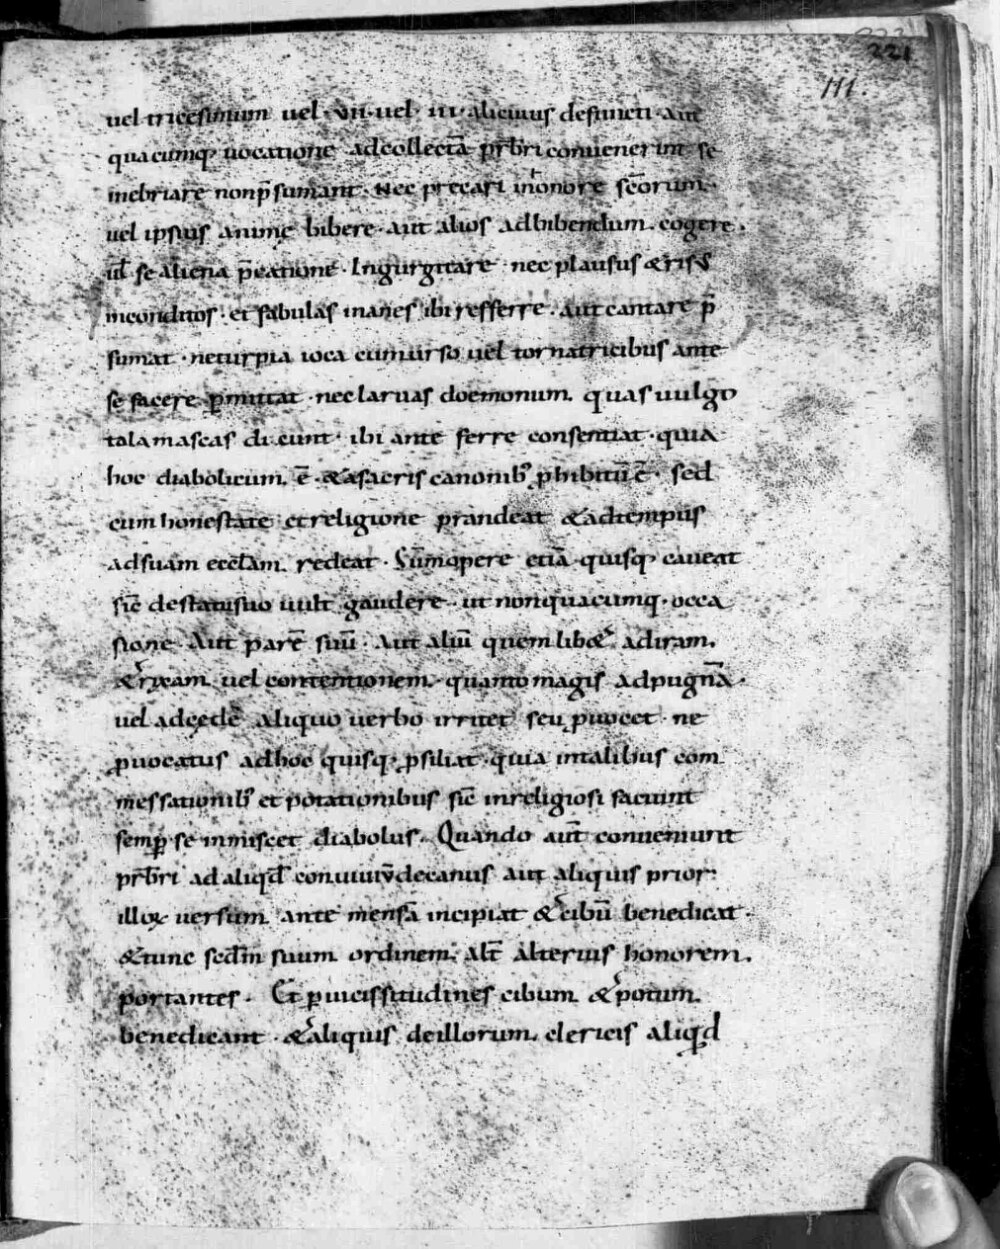 221
III.
uel tricesimum uel · vii · uel · iii · alicuius defuncti · aut
quacumq; uocatione adcollectā prb̄ri conuenerint se
inebriare nonp̄sumant · Nec precari inhonore sc̄orum ·
uel ipsius animę bibere · aut alios adbibendum · cogere ·
ul̄ se aliena p̄catione · Ingurgitare · nec plausus & risus
inconditos · et fabulas inanes ibi refferre · aut cantare p̄
sumat · neturpia ioca cumurso uel tornatricibus ante
se facere ꝑmittat · nec laruas doemonum · quas uulgo
talamascas dicunt · ibi ante ferre consentiat · quia
hoc diabolicum · ē · & asacris canonib; ꝓhibitū ē · sed
cum honestate et religione prandeat & adtempus
adsuam eccl̄am · redeat · Sūmopere etiā quisq; caueat
sic̄ destatusuo uult gaudere · ut nonquacumq; · occa
sione · Aut parē suū · Aut aliū quemlib& · adiram ·
& rixam uel contentionem · quanto magis adpugnā ·
uel adcędē aliquo uerbo irritet seu ꝓuocet · ne
ꝓuocatus adhoc quisq; ꝓsiliat · quia intalibus com
messationib; et potationibus sic̄ inreligiosi faciunt
semꝑ se inmiscet diabolus · Quando aut̄ conueniunt
prb̄ri ad aliqd̄ conuiuiū decanus aut aliquis prior
illoꝝ uersum ante mensā incipiat & cibū benedicat ·
& tunc secd̄m suum ordinem · alt̄ alterius honorem ·
portantes · Et ꝑuicissitudines cibum & potum ·
benedicant · & aliquis deillorum · clericis aliqd